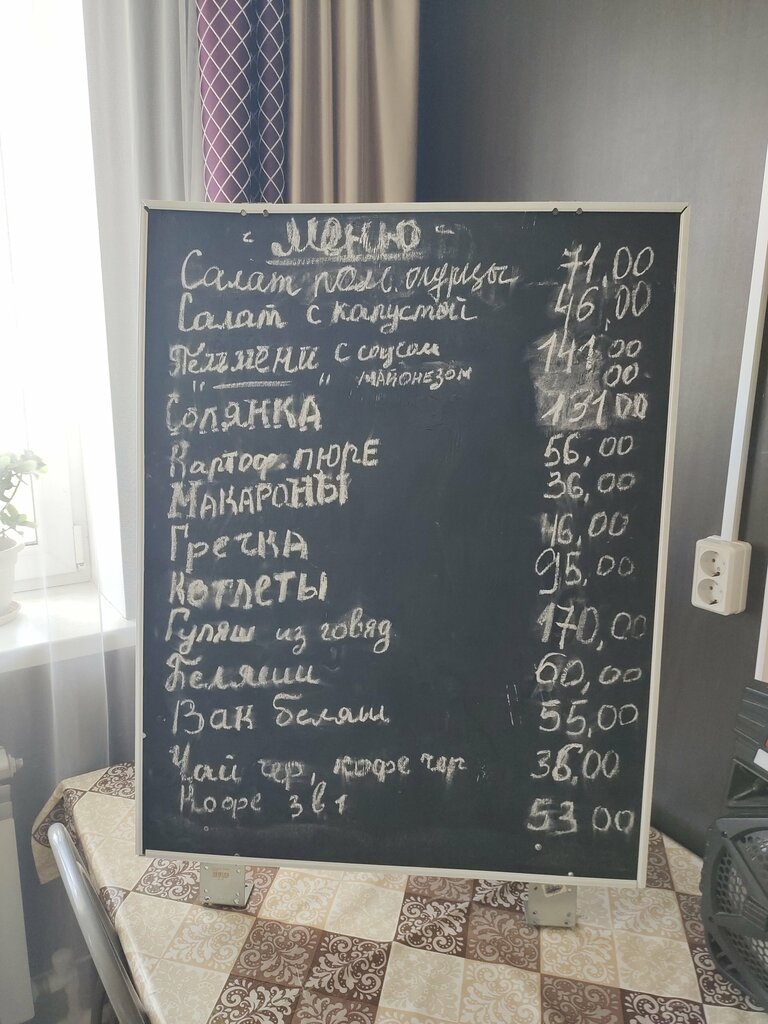 - Меню -
Салат пом. огурцы 71,00
Салат с капустой 46,00
Пельмени с соусом 141,00
" — " майонезом 00
Солянка 131 00
Картоф. пюре 56,00
Макароны 36,00
Гречка 46,00
Котлеты 95,00
Гуляш из говяд 170,00
Беляши 60,00
Вак беляш 55,00
Чай чер, кофе чер 36,00
Кофе 3 в 1 53 00